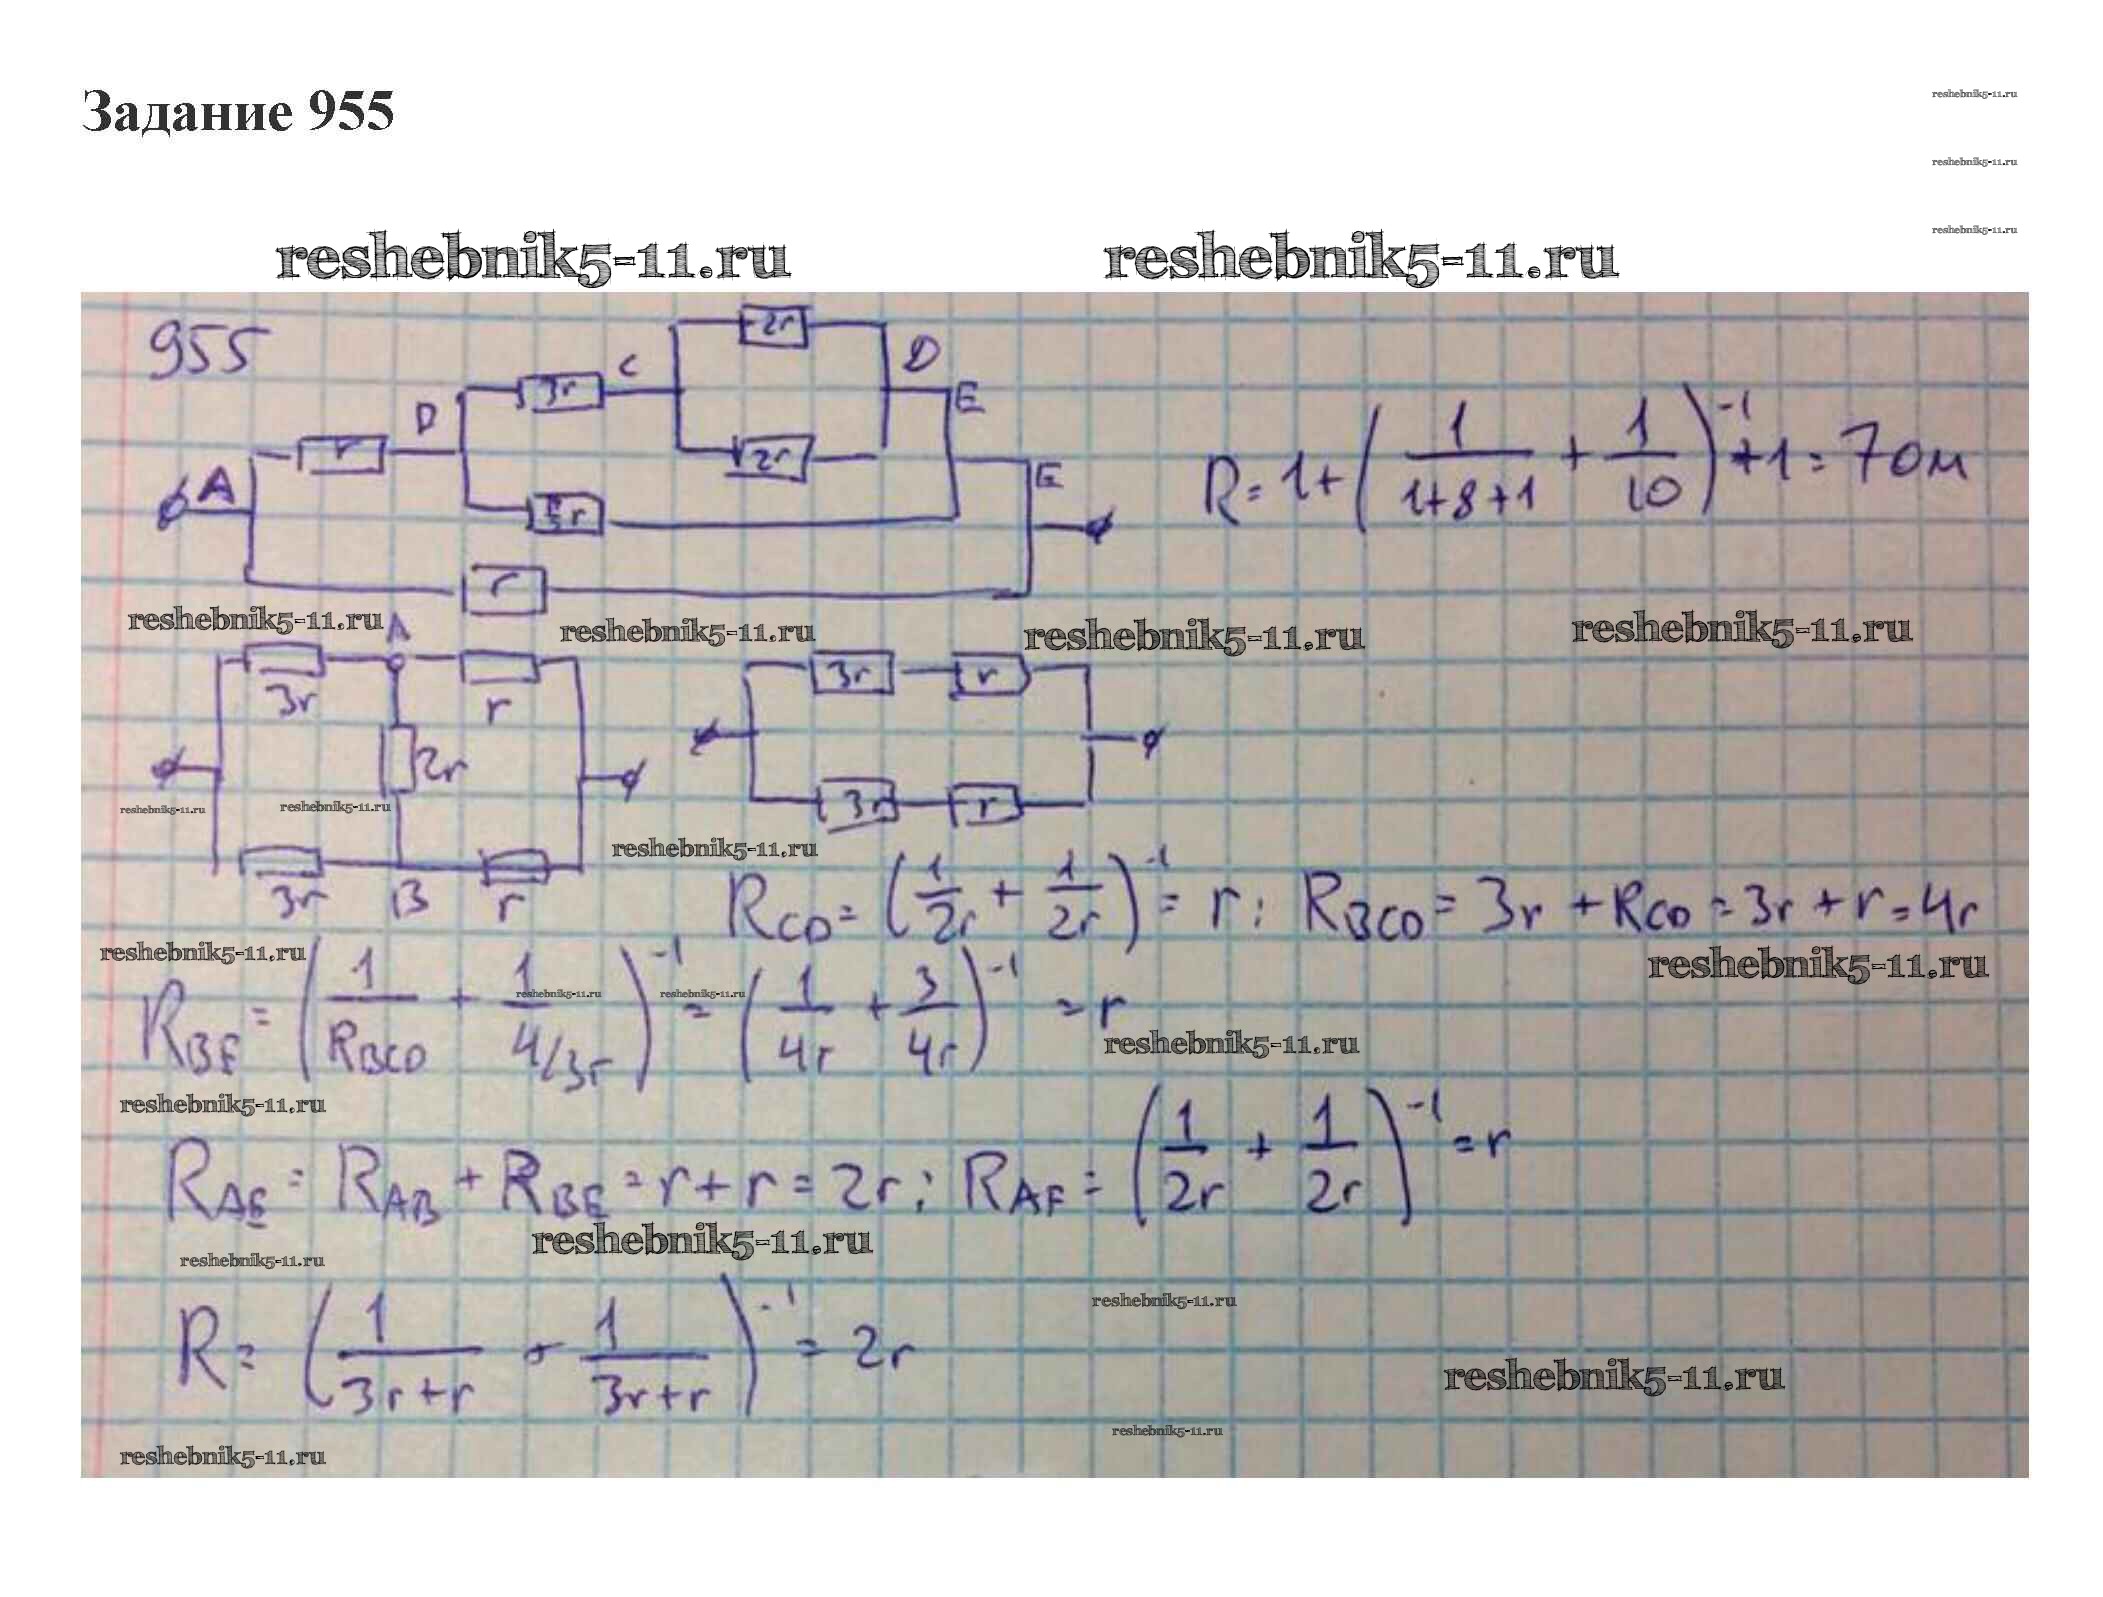 Задание 955
reshebnik5-11.ru
reshebnik5-11.ru
reshebnik5-11.ru
reshebnik5-11.ru reshebnik5-11.ru
955
2r
D
3r C
E
D
r
2r
A
E
3r
r
R = 1 + (1/(1+8+1) + 1/10)^-1 + 1 = 7 Ом
reshebnik5-11.ru reshebnik5-11.ru reshebnik5-11.ru reshebnik5-11.ru
A
3r r
2r
3r B r
3r r
3r r
reshebnik5-11.ru reshebnik5-11.ru
reshebnik5-11.ru
R_CD = (1/2r + 1/2r)^-1 = r; R_BCD = 3r + R_CD = 3r + r = 4r
reshebnik5-11.ru reshebnik5-11.ru
R_BE = (1/R_BCD + 1/(4/3r))^-1 = (1/4r + 3/4r)^-1 = r
reshebnik5-11.ru reshebnik5-11.ru
reshebnik5-11.ru
reshebnik5-11.ru
R_AE = R_AB + R_BE = r + r = 2r; R_AF = (1/2r + 1/2r)^-1 = r
reshebnik5-11.ru
reshebnik5-11.ru
reshebnik5-11.ru
R = (1/(3r+r) + 1/(3r+r))^-1 = 2r
reshebnik5-11.ru
reshebnik5-11.ru
reshebnik5-11.ru